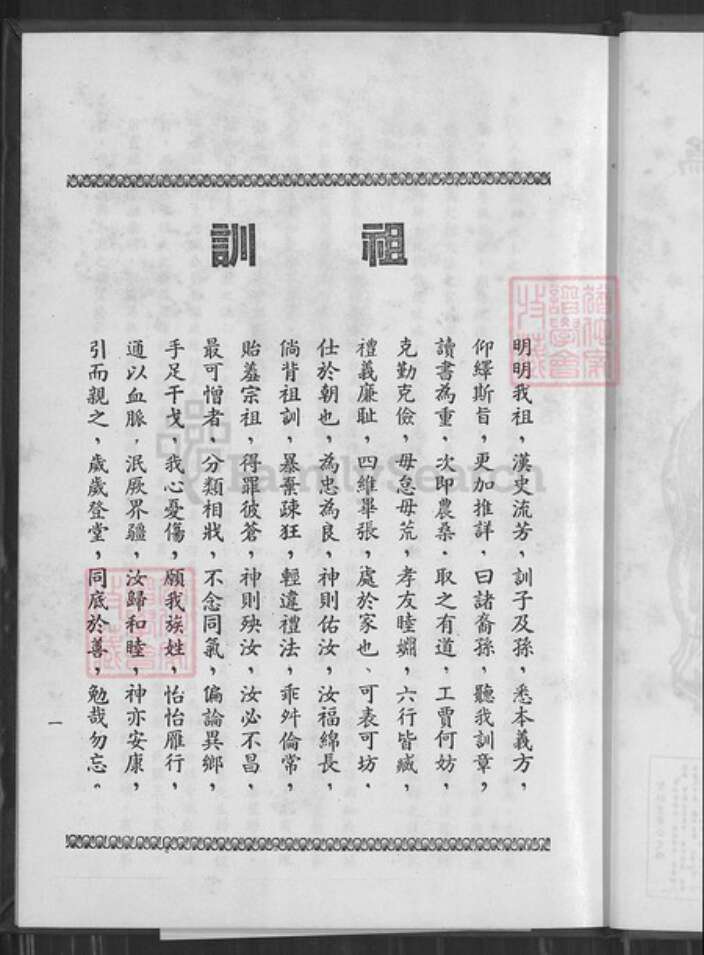 祖訓
明明我祖，漢史流芳，訓子及孫，悉本義方，
仰繹斯旨，更加推詳．曰諸裔孫，聽我訓章，
讀書為重，次即農桑．取之有道，工賈何妨，
克勤克儉，毋怠毋荒，孝友睦婣，六行皆臧，
禮義廉耻，四維畢張，處於家也、可表可坊．
仕於朝也，為忠為良，神則佑汝，汝福綿長，
倘背祖訓，暴棄疎狂，輕違禮法，乖舛倫常，
貽羞宗祖，得罪彼蒼，神則殃汝，汝必不昌，
最可憎者、分類相戕，不念同氣，偏論異鄉，
手足干戈，我心憂傷，願我族姓，怡怡雁行，
通以血脈，泯厥界疆，汝歸和睦，神亦安康，
引而親之，歲歲登堂，同底於善，勉哉勿忘。
一
FamilySearch